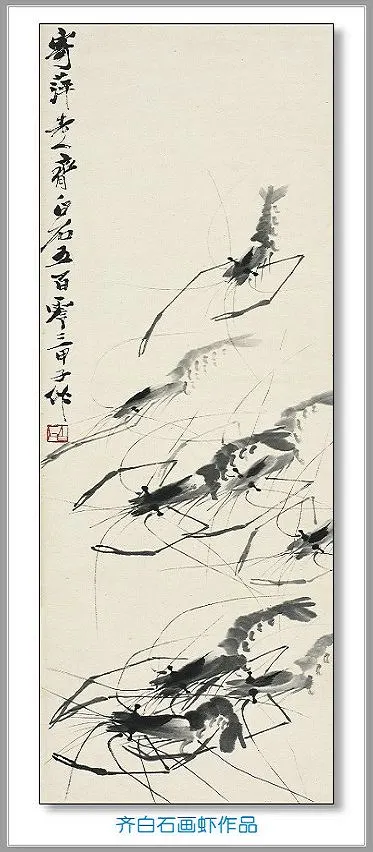 寄萍老人齊白石五百零三甲子作
齐白石画虾作品